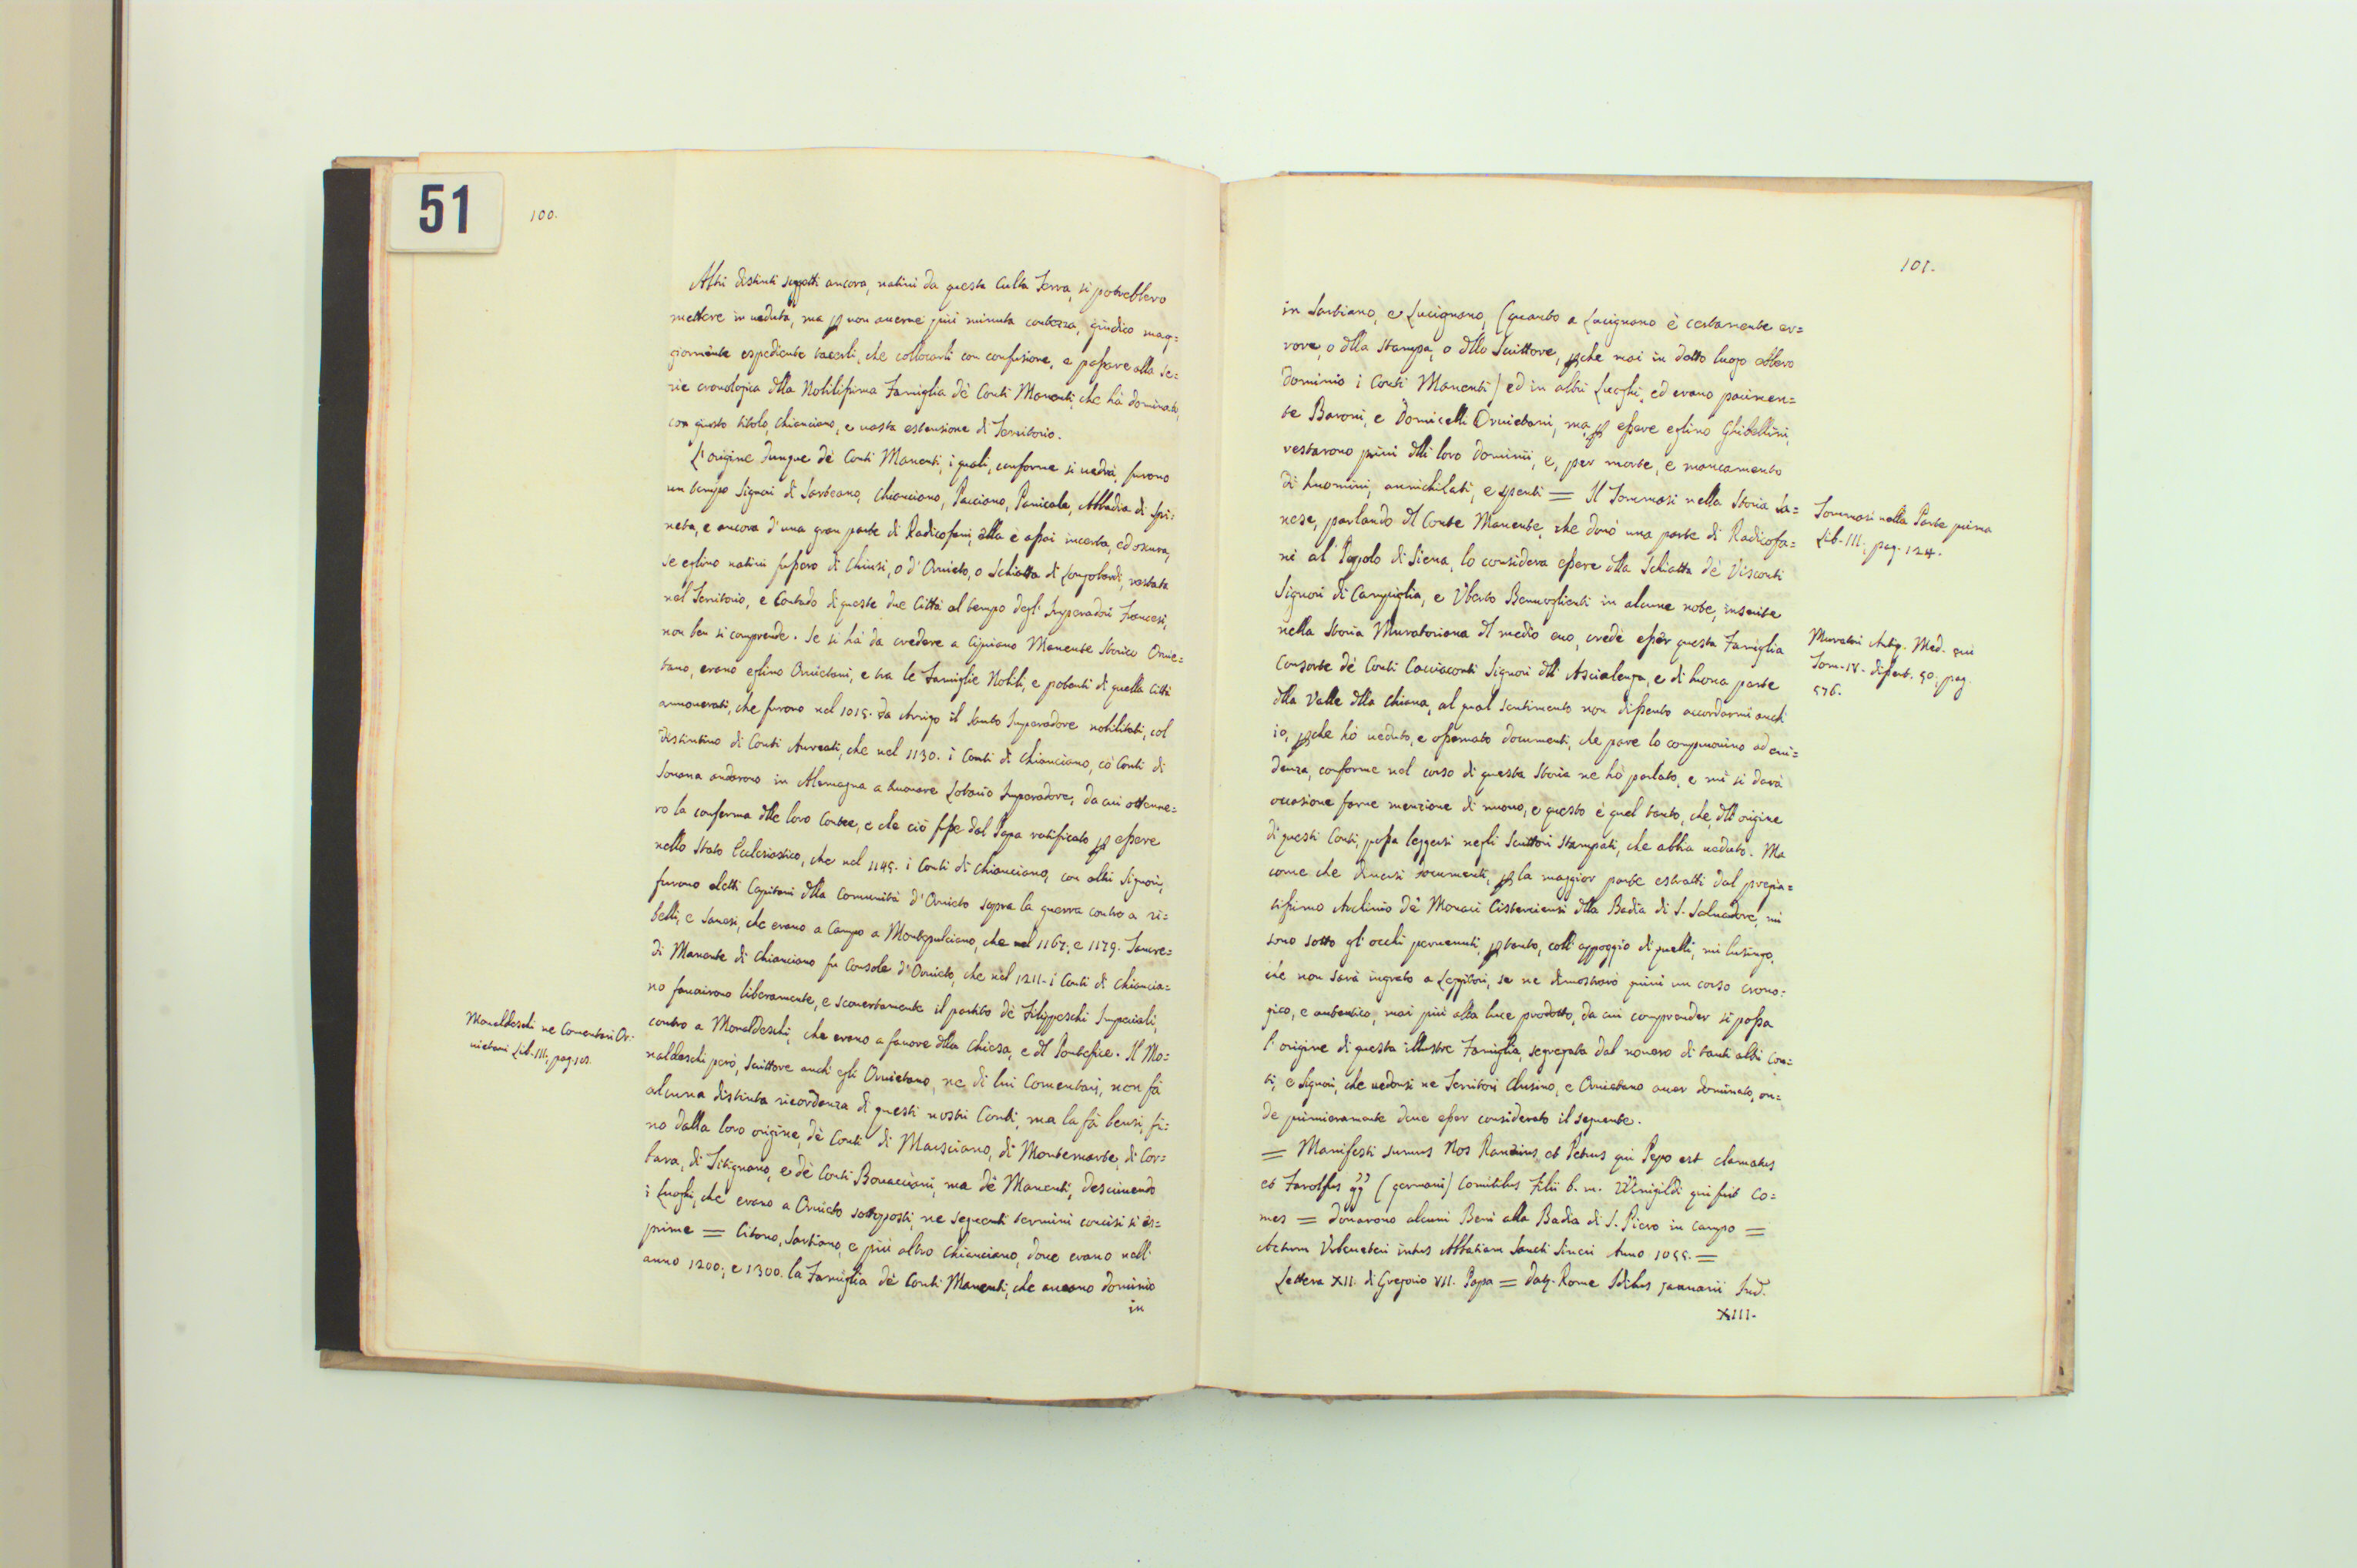 51
100.
Altri distinti soggetti ancora, natiui da questa Culta Terra, si potrebbero
mettere in ueduta, ma p non auerne più minuta contezza, giudico mag=
giormente espediente tacerli, che collocarli con confusione, e passare alla se=
rie cronologica dlla Nobilissima Famiglia dè Conti Manenti, che hà dominato,
con giusto titolo, Chianciano, e uasta estensione di Territorio.
L'origine dunque dè Conti Manenti, i quali, conforme si uedrà, furono
un tempo Signori di Sarteano, Chianciano, Pacciano, Panicale, Abbadia di Spi=
neta, e ancora d'una gran parte di Radicofani, ella è assai incerta, ed oscura,
se eglino natiui fussero di Chiusi, o d'Oruieto, o Schiatta di Longobardi, restata
nel Territorio, e Contado di queste due Città al tempo degl'Imperadori Francesi,
non ben si comprende. Se si hà da credere a Cipriano Manente Storico Oruie=
tano, erano eglino Oruietani, e tra le Famiglie Nobili, e potenti di quella Città
annouerati, che furono nel 1015. da Arrigo il Santo Imperadore nobilitati, col
distintiuo di Conti Aureati, che nel 1130. i Conti di Chianciano, cò Conti di
Souana andarono in Alemagna a huonare Lotario Imperadore, da cui ottenne=
ro la conferma dlle loro Contee, e che ciò fusse dal Papa ratificato p essere
nello Stato Eclesiastico, che nel 1145. i Conti di Chianciano, con altri Signori,
furono eletti Capitani dlla Comunità d'Oruieto sopra la guerra contro a ri=
belli, e Sanesi, che erano a Campo a Montepulciano, che nel 1167; e 1179. Tancre=
di Manente di Chianciano fu Console d'Oruieto, che nel 1211. i Conti di Chiancia=
no fauorirono liberamente, e scouertamente il partito dè Filippeschi Imperiali,
contro a Monaldeschi, che erano a fauore dlla Chiesa, e dl Pontefice. Il Mo=
naldeschi però, Scrittore anch'egli Oruietano, ne di lui Comentari, non fà
alcuna distinta ricordanza di questi nostri Conti, ma la fà bensì, fi=
no dalla loro origine, dè Conti di Marsciano, di Montemarte, di Cor=
bara, di Titignano, e dè Conti Bouacciani, ma dè Manenti, descriuendo
i Luoghi, che erano a Oruieto sottoposti, ne seguenti termini concisi si es=
prime = Citona, Sartiano, e più oltro Chianciano, doue erano nell'
anno 1200; e 1300. la Famiglia dè Conti Manenti, che aueano dominio
in
Monaldeschi ne Comentari Or=
uietani Lib. III; pag. 101.
101.
in Sartiano, e Lucignano, (quanto a Lucignano è certamente er=
rore, o dlla Stampa, o dllo Scrittore, pche mai in dotto luogo ebbero
dominio i Conti Manenti) ed in altri Luoghi, ed erano parimen=
te Baroni, e Domicelli Oruietani, ma p essere eglino Ghibellini,
restarono priui dlli loro Dominii, e, per morte, e mancamento
di huomini, annichilati, e spenti = Il Tommasi nella Storia Sa=
nese, parlando dl Conte Manente, che donò una parte di Radicofa=
ni al Popolo di Siena, lo considera essere dlla Schiatta dè Visconti
Signori di Campiglia, e Vberto Benuoglienti in alcune note, inserite
nella Storia Muratoriana dl medio euo, crede esser questa Famiglia
Consorte dè Conti Cacciaconti Signori dll'Ascialenga, e di buona parte
dlla Valle dlla Chiana, al qual sentimento non dissento accordarmi anch'
io, pche hò ueduto, e osseruato documenti, che pare lo comprouino ad eui=
denza, conforme nel corso di questa Storia ne hò parlato, e mi si darà
occasione farne menzione di nuouo, e questo è quel tanto, che dll'origine
di questi Conti, possa leggersi negli Scrittori Stampati, che abbia ueduto. Ma
come che diuersi documenti, p la maggior parte estratti dal pregia=
tissimo Archiuio dè Monaci Cisterciensi dlla Badia di S. Saluadore, mi
sono sotto gl'occhi peruenuti, ptanto, coll'appoggio di quelli, mi lusingo,
che non sarà ingrato a Leggitori, se ne dimostrarò quiui un corso crono=
gico, e autentico, mai più alla luce prodotto, da cui comprender si possa
l'origine di questa illustre Famiglia, segregata dal nouero di tanti altri Con=
ti, e Signori, che uedonsi ne Territori Chusino, e Oruietano auer dominato, on=
de primieramente deue esser considerato il seguente.
= Manifesti sumus Nos Ranèrius et Petrus qui Pepo est clamatus
et Farolfus gg (germani) Comitibus Filii b. m. qui fuit Co=
mes = donarono alcuni Beni alla Badia di S. Piero in campo =
Actum Vrbeuetari intus Abbatiam Sancti Seueri Anno 1055. =
Lettera XII. di Gregorio VII. Papa = Dat. Rome Idibus Januarii Ind.
XIII.
Tommasi nella Parte prima
Lib. III; pag. 124.
Muratori Antiq. Med. eui
Tom. IV. dissert. 50; pag.
576.